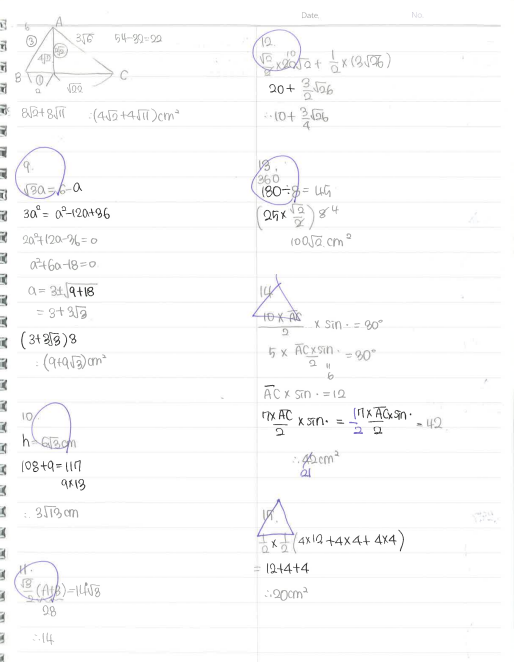 Date.
No.
6
A
③
3√6
54-32=22
4√2
B
①
2
√22
C
8√2+8√11
∴(4√2+4√11)cm²
9.
√3a=6-a
3a²= a²-12a+36
2a²+12a-36=0
a²+6a-18=0
a=3±√9+18
=3+3√3
(3+3√3)3
∴(9+9√3)cm²
10.
h=6√3cm
108+9=117
9×13
∴3√13cm
11.
(A+B)=14√3
28
∴14
12
10
+ 1/2 × (3√26)
20+ 3/2 √26
∴10+ 3/4 √26
13.
360
180÷8=45
(25× √2/2) 8 4
100√2 cm²
14
10×AC/2 × sin· =30°
5× AC×sin·/2 =30°
"
6
AC × sin· =12
7×AC/2 ×sin· = =42
∴42cm²
21
15.
1/2 × 1/2 (4×12+4×4+4×4)
=12+4+4
∴20cm²